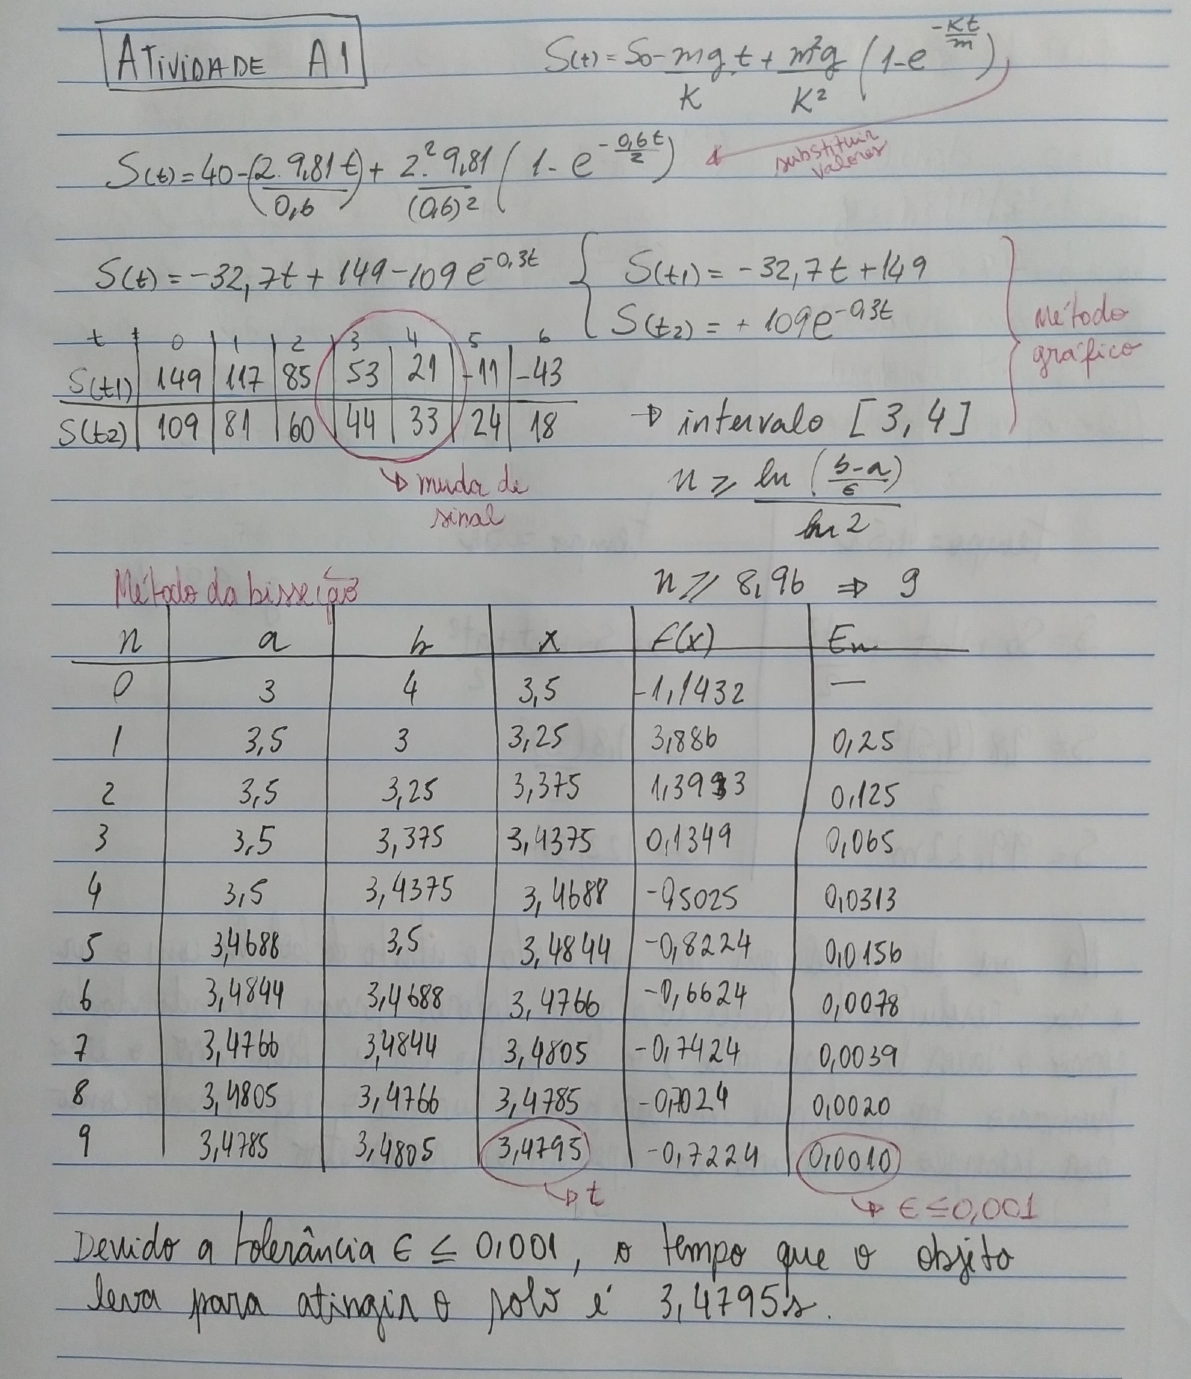 ATIVIDADE A1
S(t) = S0 - mg/K t + m²g/K² (1-e^(-Kt/m))
substituir valores
S(t) = 40 - (2.9,81t)/(0,6) + 2².9,81/(0,6)2 (1-e^(-0,6t/2))
S(t) = -32,7t + 149 - 109e^-0,3t { S(t1) = -32,7t + 149
S(t2) = + 109e^-0,3t
Método gráfico
t 0 1 2 3 4 5 6
S(t1) 149 117 85 53 21 -11 -43
S(t2) 109 81 60 44 33 24 18
→ intervalo [3,4]
↳ muda de sinal
n ≥ ln (b-a/ϵ) / ln 2
Método da bisseção
n ≥ 8,96 ⇒ 9
n a b x f(x) En
0 3 4 3,5 -1,1432 —
1 3,5 3 3,25 3,886 0,25
2 3,5 3,25 3,375 1,3993 0,125
3 3,5 3,375 3,4375 0,1349 0,065
4 3,5 3,4375 3,4688 -0,5025 0,0313
5 3,4688 3,5 3,4844 -0,8224 0,0156
6 3,4844 3,4688 3,4766 -0,6624 0,0078
7 3,4766 3,4844 3,4805 -0,7424 0,0039
8 3,4805 3,4766 3,4785 -0,7024 0,0020
9 3,4785 3,4805 3,4795 -0,7224 0,0010
↳ t
↳ ϵ ≤ 0,001
Devido a tolerância ϵ ≤ 0,001, o tempo que o objeto
leva para atingir o solo é 3,4795s.